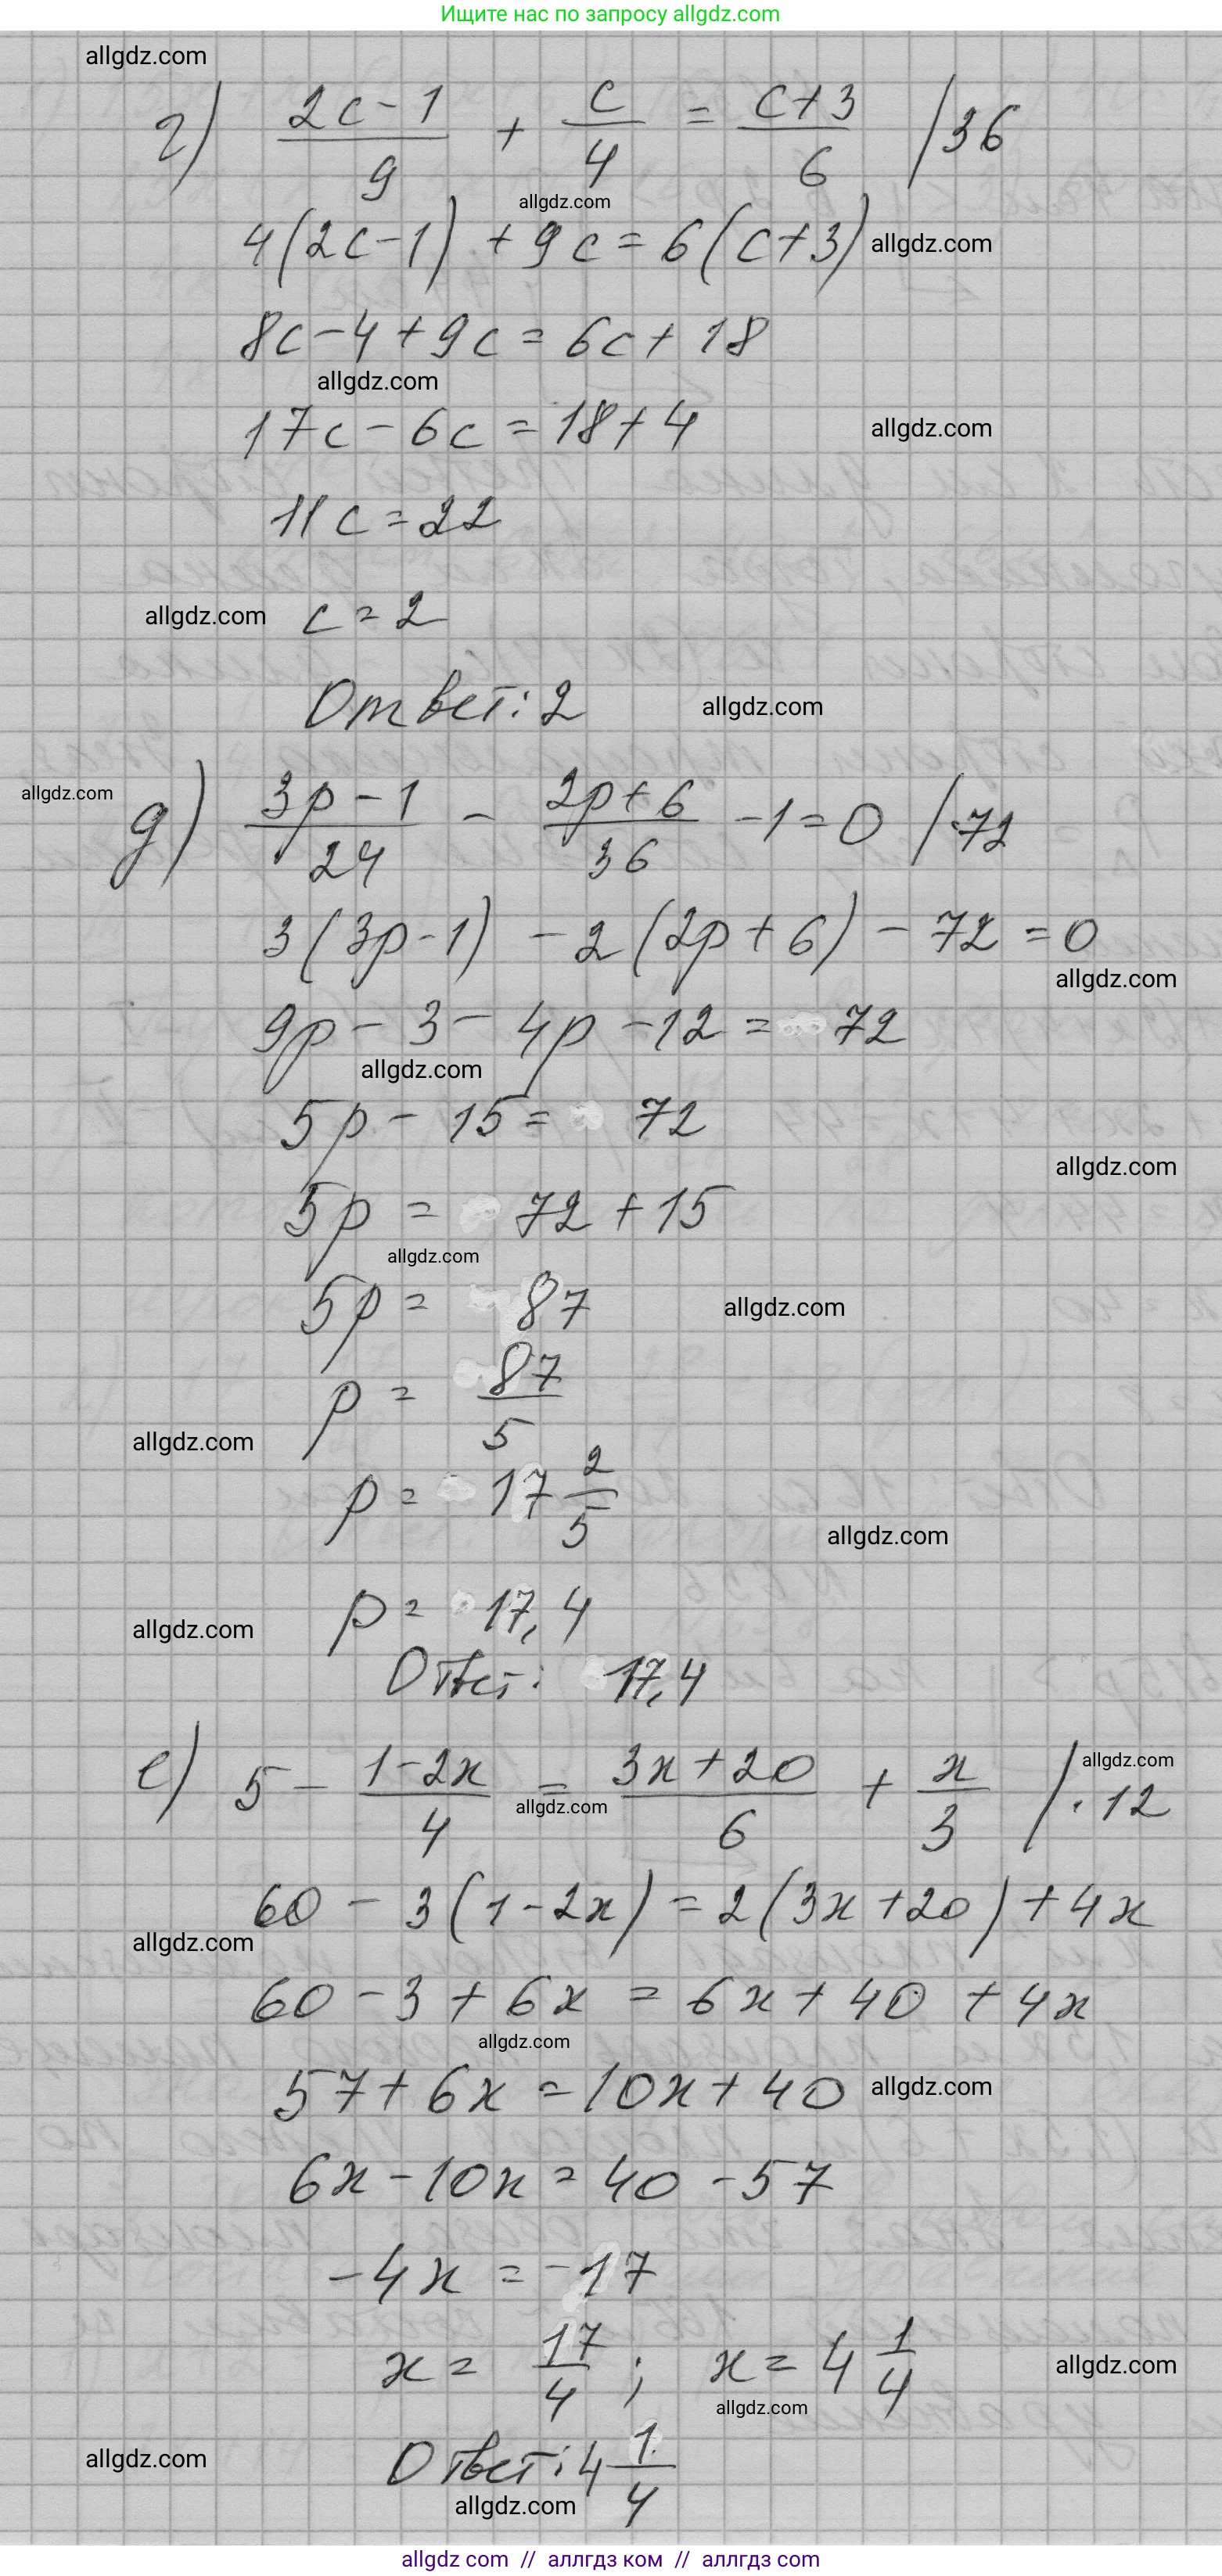 Ищите нас по запросу allgdz.com
allgdz.com
г) (2c-1)/9 + c/4 = (c+3)/6 /36
allgdz.com
4(2c-1) + 9c = 6(c+3)
allgdz.com
8c-4+9c = 6c+18
allgdz.com
17c-6c = 18+4
allgdz.com
11c = 22
allgdz.com
c = 2
Ответ: 2
allgdz.com
allgdz.com
д) (3p-1)/24 - (2p+6)/36 - 1 = 0 /·72
3(3p-1) - 2(2p+6) - 72 = 0
allgdz.com
9p - 3 - 4p - 12 = 72
allgdz.com
5p - 15 = 72
allgdz.com
5p = 72 + 15
allgdz.com
5p = 87
allgdz.com
p = 87/5
allgdz.com
p = 17 2/5
allgdz.com
p = 17,4
allgdz.com
Ответ: 17,4
е) 5 - (1-2x)/4 = (3x+20)/6 + x/3 /·12
allgdz.com
allgdz.com
60 - 3(1-2x) = 2(3x+20) + 4x
allgdz.com
60 - 3 + 6x = 6x + 40 + 4x
allgdz.com
57 + 6x = 10x + 40
allgdz.com
6x - 10x = 40 - 57
-4x = -17
x = 17/4 ; x = 4 1/4
allgdz.com
allgdz.com
Ответ: 4 1/4
allgdz.com
allgdz.com
allgdz com // аллгдз ком // аллгдз com